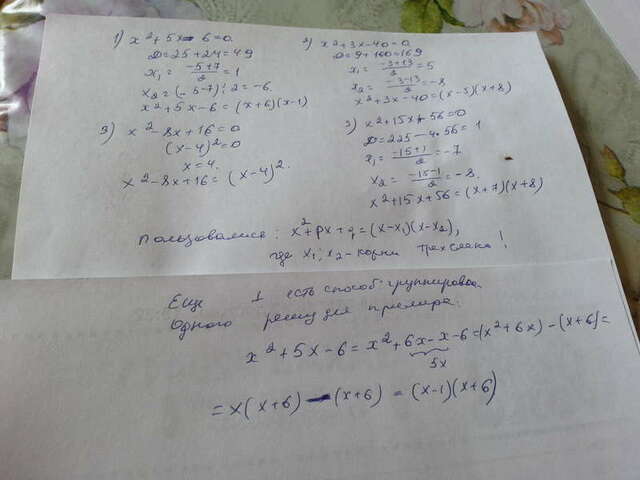 1) x²+5x-6=0
D=25+24=49
x₁= (-5+7)/2 = 1
x₂=(-5-7):2=-6.
x²+5x-6=(x+6)(x-1)
2) x²+3x-40=0
D=9+160=169
x₁= (-3+13)/2 = 5
x₂= (-3-13)/2 = -8
x²+3x-40=(x-5)(x+8)
3) x²-8x+16=0
(x-4)²=0
x=4.
x²-8x+16=(x-4)².
) x²+15x+56=0
D=225-4·56=1
x₁= (-15+1)/2 = -7
x₂= (-15-1)/2 = -8.
x²+15x+56=(x+7)(x+8)
Пользовались: x²+px+q=(x-x₁)(x-x₂),
где x₁; x₂-корни трехчлена!
Еще 1 есть способ: группировка
Одного решу для примера:
x²+5x-6=x²+6x-x-6=(x²+6x)-(x+6)=
5x
=x(x+6)-(x+6)=(x-1)(x+6)